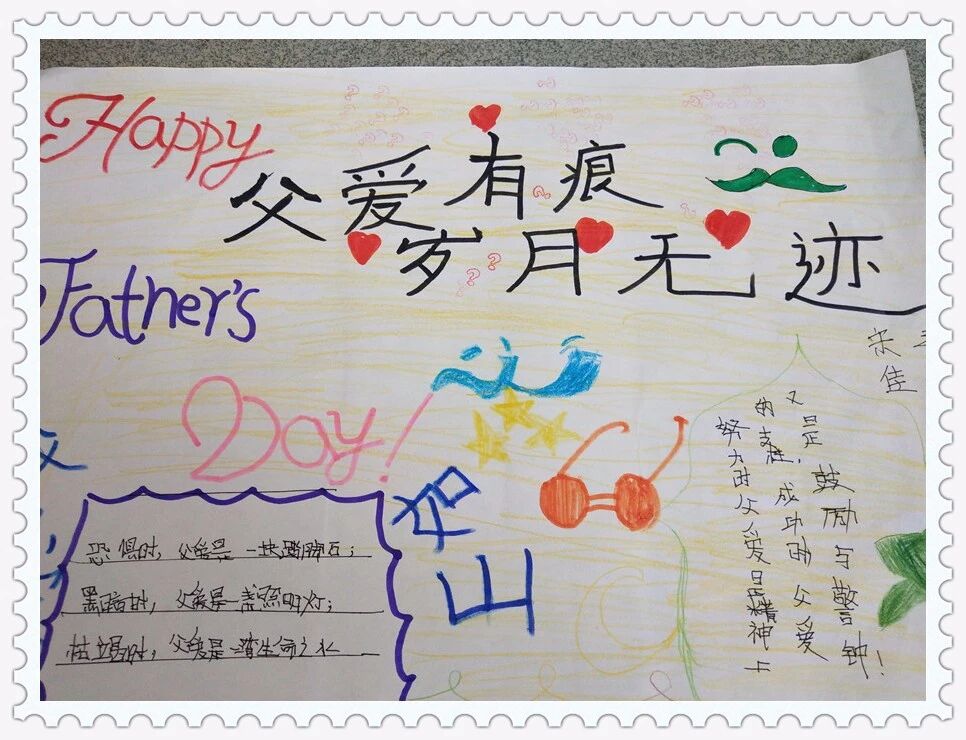 Happy
父爱有痕
岁月无迹
Father's
Day!
宋
佳
努力时父爱是精神上
的支柱，成功时父爱
又是鼓励与警钟！
恐惧时，父爱是一块踏脚石；
黑暗时，父爱是一盏照明灯；
枯竭时，父爱是一湾生命之水